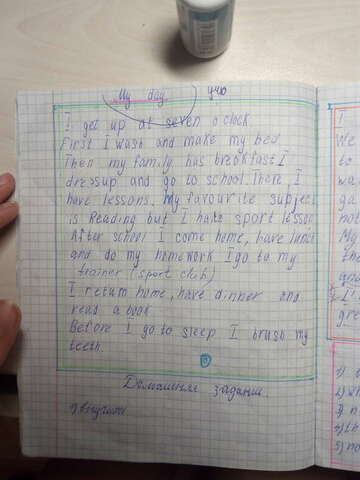 My day учю
I get up at seven o'clock
First I wash and make my bed.
Then my family has breakfast I
dress up and go to school. There, I
have lessons. My favourite subject
is Reading but I hate sport lesson
After school I come home, have lunch
and do my homework I go to my
trainer (sport club)
I return home, have dinner and
read a book
Before I go to sleep I brush my
teeth.
Домашнее задание.
1) выучить
I
We
to
wa
ga
My
the
I'
gre
1)
2) w
3) n
4) th
5) no